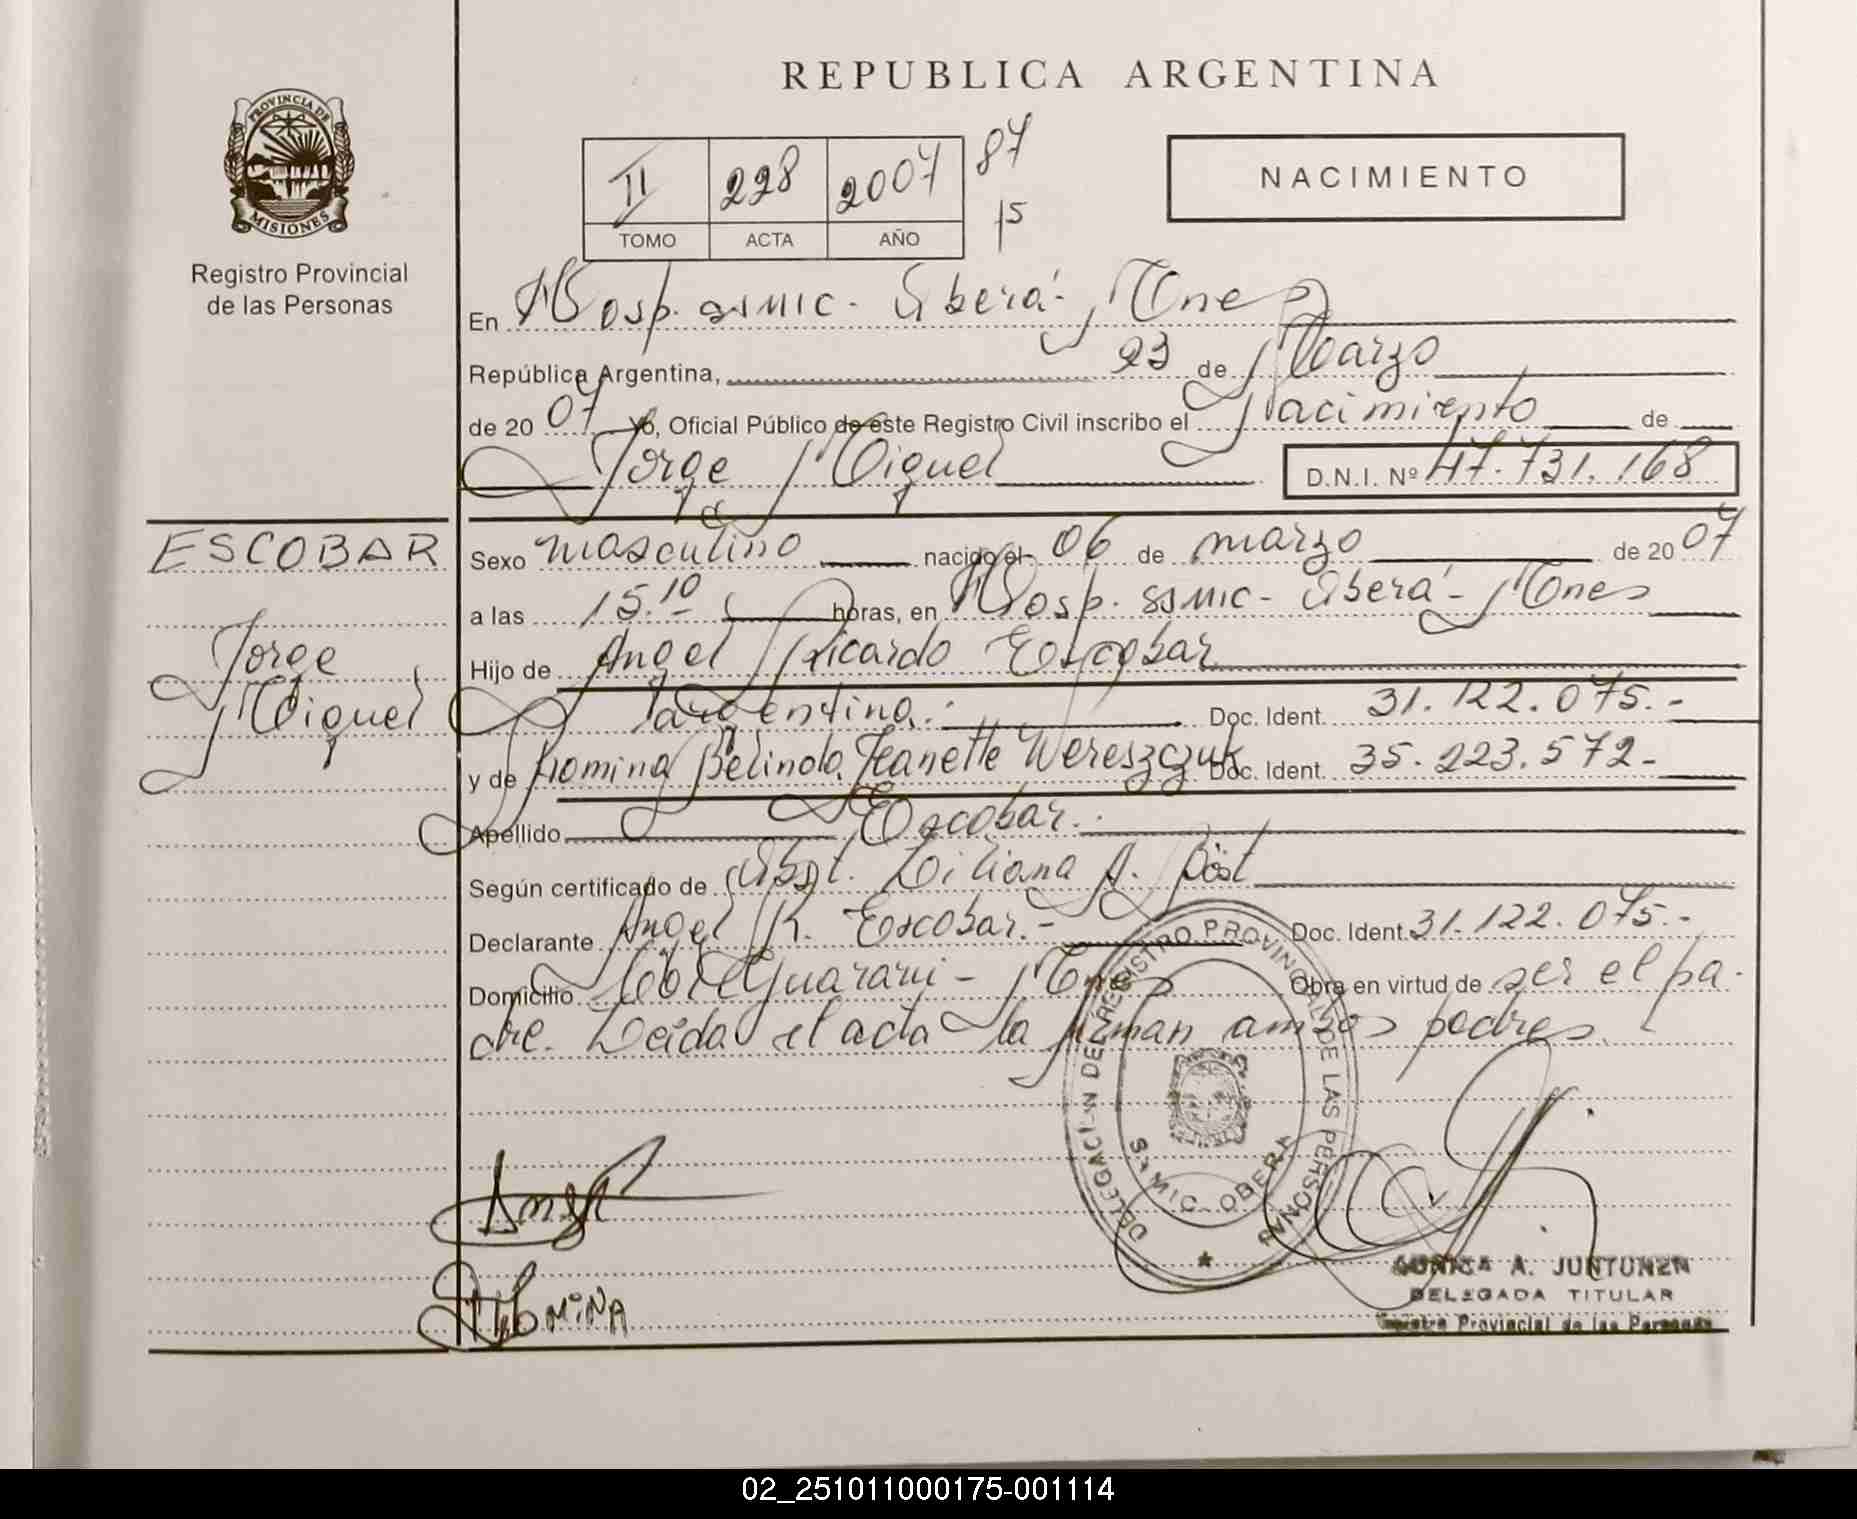 REPUBLICA ARGENTINA
PROVINCIA DE
MISIONES
Registro Provincial
de las Personas
II 228 2007 87
15
TOMO ACTA AÑO
NACIMIENTO
En Hosp. SAMIC - Oberá - Mnes
República Argentina, 23 de Marzo
de 2007 Yo, Oficial Público de este Registro Civil inscribo el Nacimiento de
Jorge Miguel D.N.I. Nº 47.731.168
ESCOBAR
Jorge
Miguel
Sexo masculino nacido el 06 de marzo de 2007
a las 15.10 horas, en Hosp. SAMIC - Oberá - Mnes
Hijo de Angel Ricardo Escobar
argentino.- Doc. Ident. 31.122.075.-
y de Romina Belinda Jeanette Wereszczuk Doc. Ident. 35.223.572-
Apellido Escobar.-
Según certificado de Obst. Liliana A. Röst
Declarante Angel R. Escobar.- Doc. Ident. 31.122.075.-
Domicilio Guarani - Mnes Obra en virtud de ser el pa-
dre. Leida el acta la firman ambos padres.
DELEGACION DEL REGISTRO PROVINCIAL DE LAS PERSONAS
SAMIC. OBERA
Angel
Romina
A. JUNTUNEN
DELEGADA TITULAR
Registro Provincial de las Personas
02_251011000175-001114